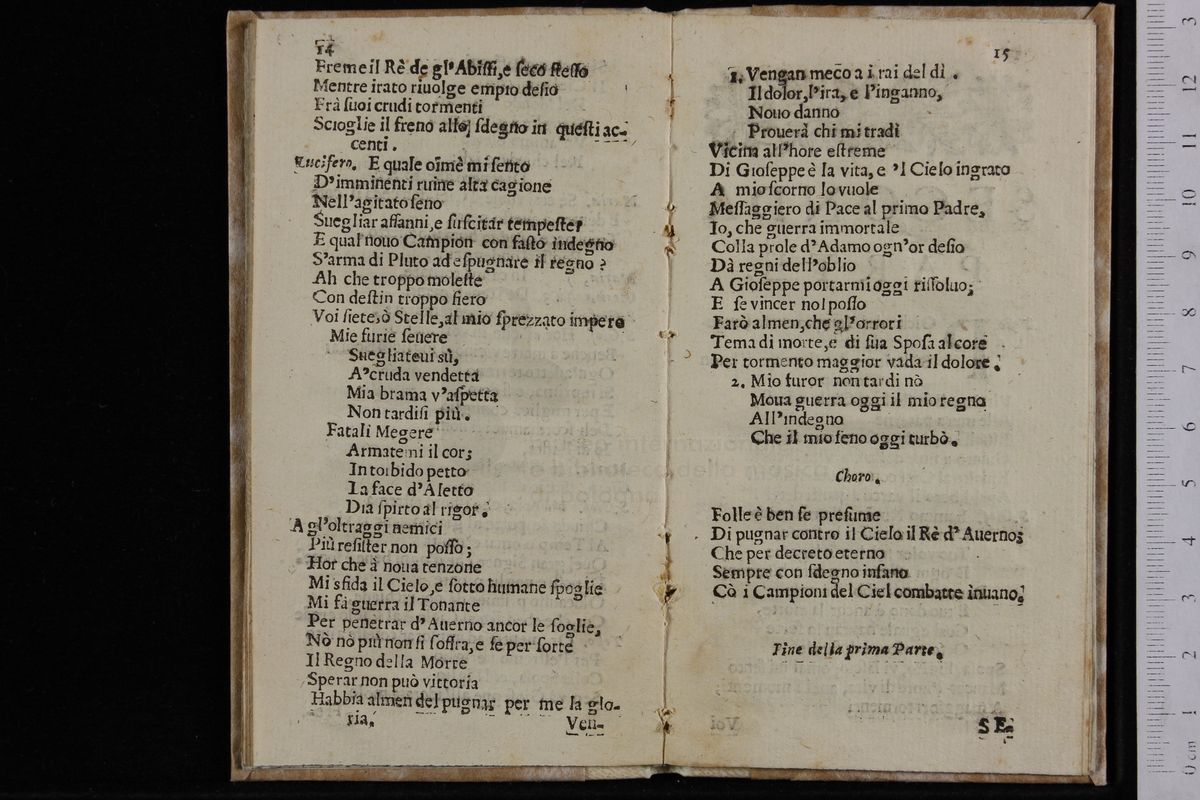 14
Freme il Rè de gl'Abissi, e seco stesso
Mentre irato riuolge empio desio
Frà suoi crudi tormenti
Scioglie il freno allo sdegno in questi ac-
centi.
Lucifero. E quale oimè mi sento
D'imminenti ruine alta cagione
Nell'agitato seno
Suegliar affanni, e suscitar tempeste?
E qual nouo Campion con fasto indegno
S'arma di Pluto ad espugnare il regno?
Ah che troppo moleste
Con destin troppo fiero
Voi siete, ò Stelle, al mio sprezzato impero
Mie furie seuere
Suegliateui sù,
A'cruda vendetta
Mia brama v'aspetta
Non tardisi più.
Fatali Megere
Armatemi il cor;
In torbido petto
La face d'Aletto
Dia spirto al rigor.
A gl'oltraggi nemici
Più resister non posso;
Hor che à noua tenzone
Mi sfida il Cielo, e sotto humane spoglie
Mi fà guerra il Tonante
Per penetrar d'Auerno ancor le soglie,
Nò nò più non si soffra, e se per sorte
Il Regno della Morte
Sperar non può vittoria
Habbia almen del pugnar per me la glo-
ria.
Ven-
15
1. Vengan meco a i rai del dì.
Il dolor, l'ira, e l'inganno,
Nouo danno
Prouerà chi mi tradì
Vicina all'hore estreme
Di Gioseppe è la vita, e 'l Cielo ingrato
A mio scorno lo vuole
Messaggiero di Pace al primo Padre,
Io, che guerra immortale
Colla prole d'Adamo ogn'or desio
Dà regni dell'oblio
A Gioseppe portarmi oggi rissoluo;
E se vincer nol posso
Farò almen, che gl'orrori
Tema di morte, e di sua Sposa al core
Per tormento maggior vada il dolore.
2. Mio furor non tardi nò
Moua guerra oggi il mio regno
All'indegno
Che il mio seno oggi turbò.
Choro.
Folle è ben se presume
Di pugnar contro il Cielo il Rè d'Auerno;
Che per decreto eterno
Sempre con sdegno insano
Cò i Campioni del Ciel combatte inuano.
Fine della prima Parte.
SE-